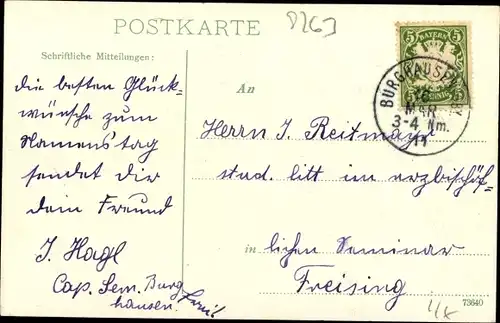 POSTKARTE
Schriftliche Mitteilungen:
die besten Glück-
wünsche zum
Namenstag
sendet Dir
dein Freund
J. Hagl
Cap. Sem. Burg
hausen.
An
Herrn J. Reitmayr
stud. litt im erzbischöf-
in lichen Seminar
Freising
5 BAYERN 5
BURGHAUSEN
MAR
3-4 Nm.
11
73640